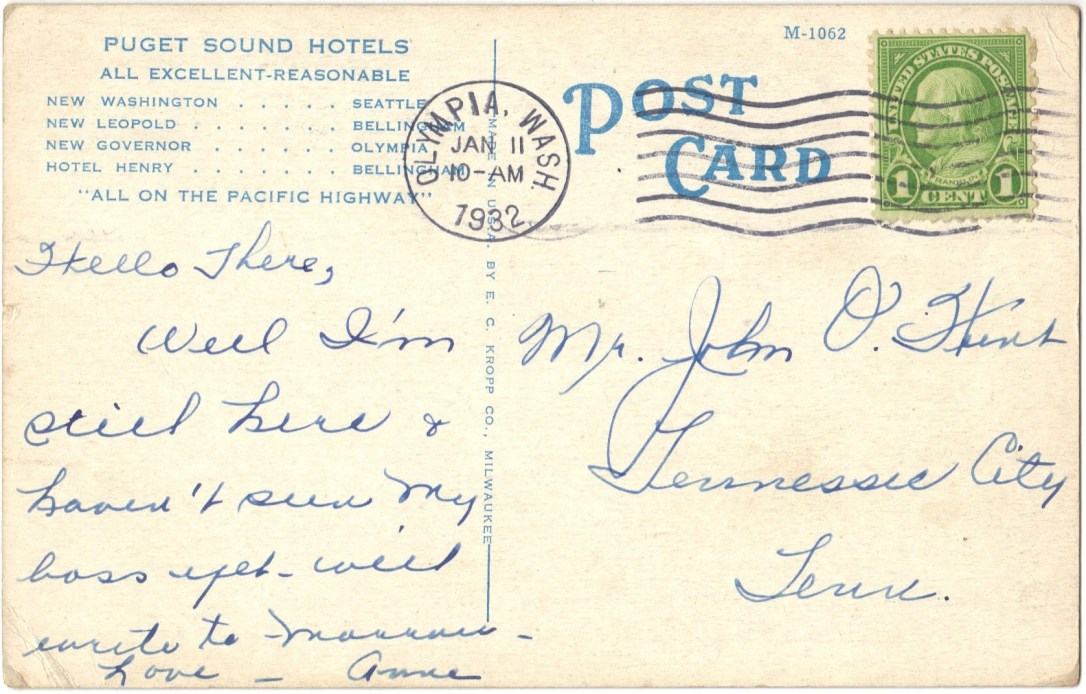 PUGET SOUND HOTELS
ALL EXCELLENT-REASONABLE
NEW WASHINGTON . . . . . SEATTLE
NEW LEOPOLD . . . . . . . BELLINGHAM
NEW GOVERNOR . . . . . . OLYMPIA
HOTEL HENRY . . . . . . . BELLINGHAM
"ALL ON THE PACIFIC HIGHWAY"
Hello There,
Well I'm
still here &
haven't seen my
boss yet - will
write to-morrow -
Love - Anne
MADE IN U.S.A. BY E. C. KROPP CO., MILWAUKEE
OLYMPIA, WASH.
JAN 11
10-AM
1932
M-1062
POST
CARD
UNITED STATES POSTAGE
FRANKLIN
1 CENT 1
Mr. John O. Hunt
Tennessee City
Tenn.